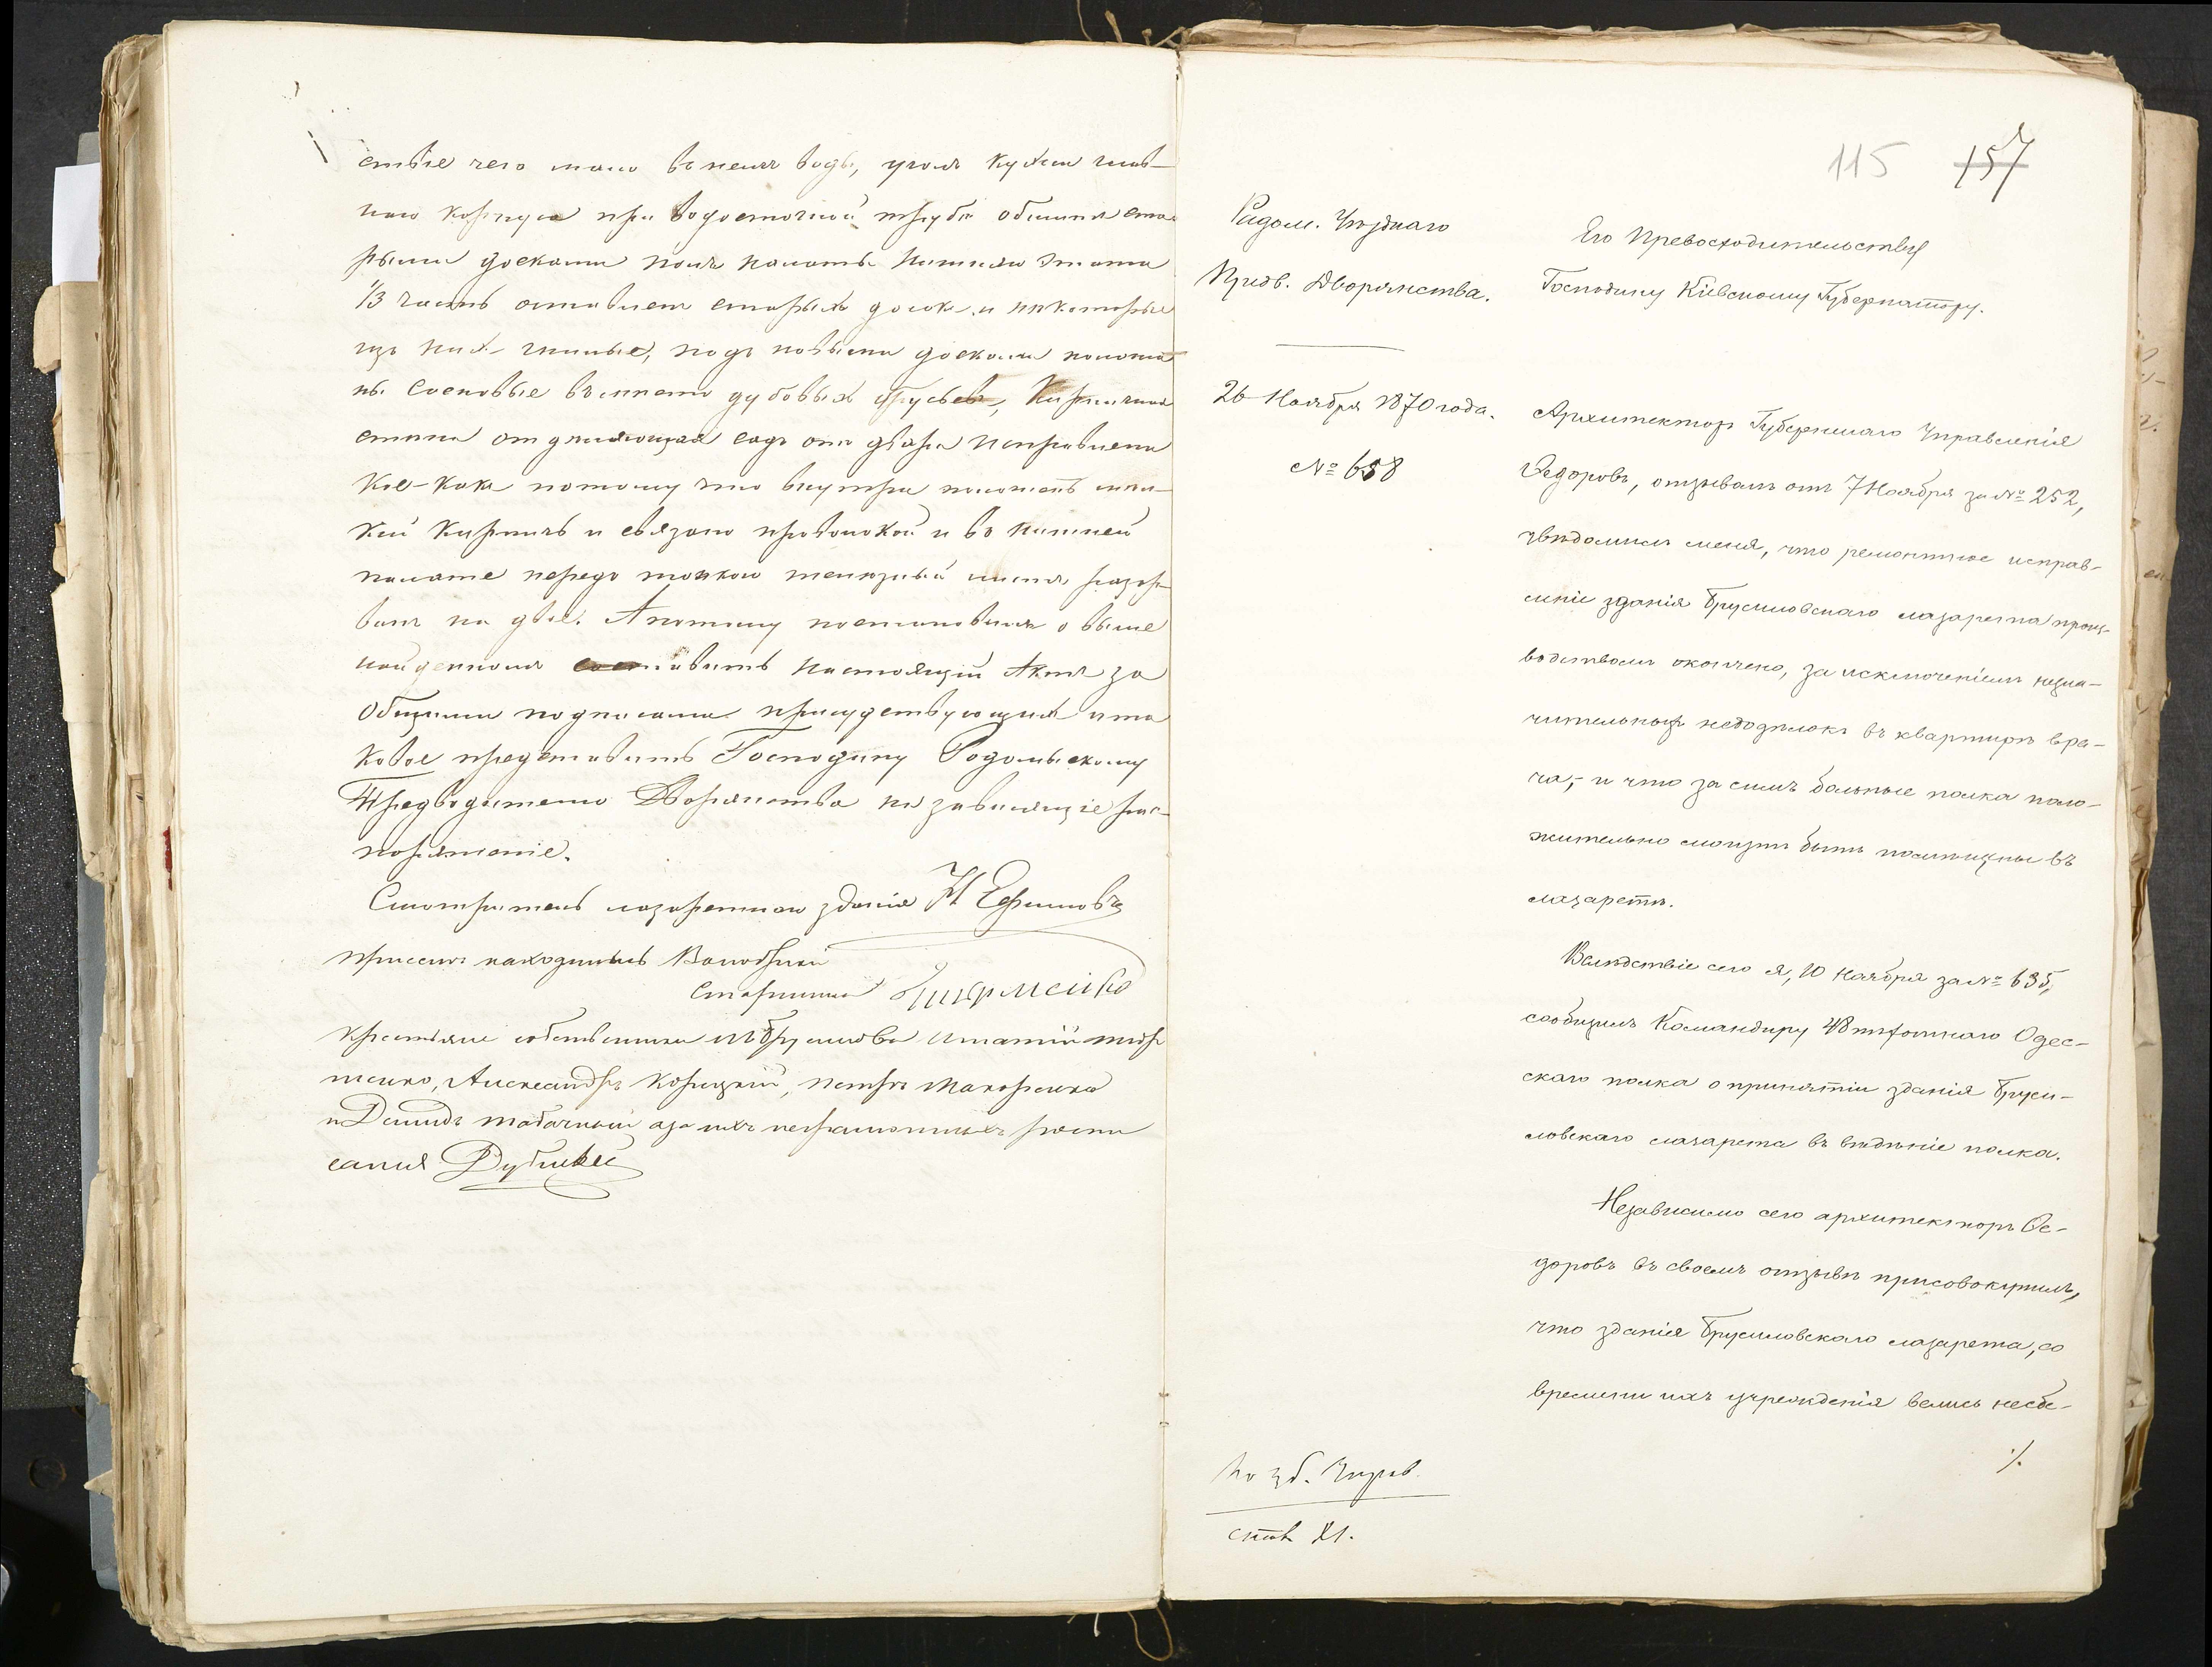 ствіе чего мало въ немъ воды, уголъ кухни глав-
наго корпуса при водосточной трубѣ обшитъ ста
рыми досками полъ палаты нижняго этажа
1/3 часть оставлен старыхъ досокъ и нѣкоторые
изъ них гнилые, подъ новыми досками положе
ны сосновые въ мѣсто дубовых брусьев, Кирпичная
стена отделяющая садъ отъ двора исправлена
Кое-Какъ потому что внутри положенъ мел-
кий кирпичъ и связано проволокой и въ нижней
палате передъ топкою железный листъ разор
ванъ на двое. А потому постановили о выше
найденномъ составить настоящій Актъ за
Общими подписами присудствующих и та
ковое представить Господину Радомыскому
Предводителю Дворянства на зависящіе рас-
поряженіе.
Смотритель лазаретнаго зданія Н Ефимовъ
при семъ находились Волостной
Старшина
крестьяне собственники м Брусилова
Александръ Корицкий, Петръ Макаренко
и Демидъ Табачный а за нихъ неграмотныхъ роспи
сался
115 157
Радом. Уѣзднаго
Предв. Дворянства.
26 Ноября 1870 года.
№ 658
Его Превосходительству
Господину Кіевскому Губернатору.
Архитекторъ Губернскаго Управленія
Ѳедоровъ, отзывомъ отъ 7 Ноября за № 252,
увѣдомилъ меня, что ремонтное исправ-
леніе зданія Брусиловскаго лазарета произ-
водствомъ окончено, за исключеніемъ незна-
чительныхъ недодѣлокъ въ квартирѣ вра-
ча,- и что за симъ больные полка поло-
жительно могутъ быть помѣщены въ
лазаретъ.
Вслѣдствіе сего я, 10 Ноября за № 635,
сообщилъ Командиру 48 пѣхотнаго Одес-
скаго полка о принятіи зданія Бруси-
ловскаго лазарета въ вѣдѣніе полка.
Независимо сего архитекторъ Ѳе-
доровъ въ своемъ отзывѣ присовокупилъ,
что зданія Брусиловскаго лазарета, со
времени ихъ учрежденія велись несбе-
./.
По